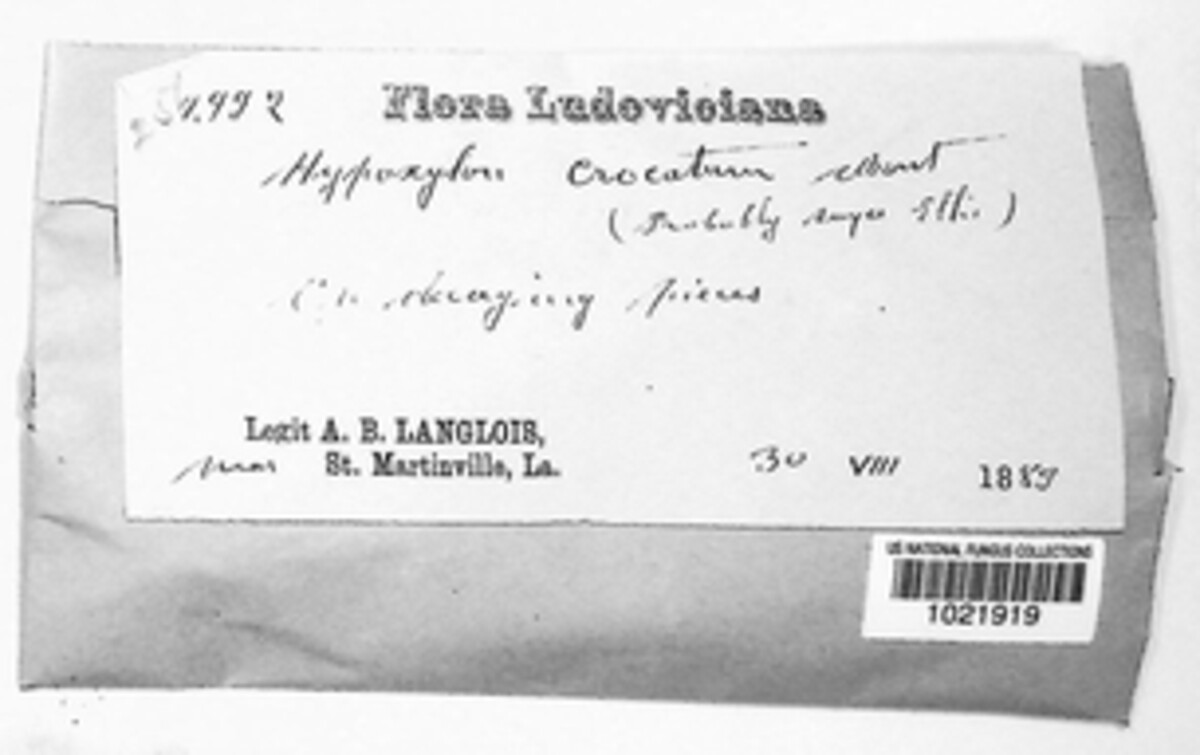 1992
Flora Ludoviciana
Hypoxylon crocatum Mont
(Probably says Ellis)
On decaying
Legit A. B. LANGLOIS,
near St. Martinville, La.
30 VIII 1889
US NATIONAL FUNGUS COLLECTIONS
1021919